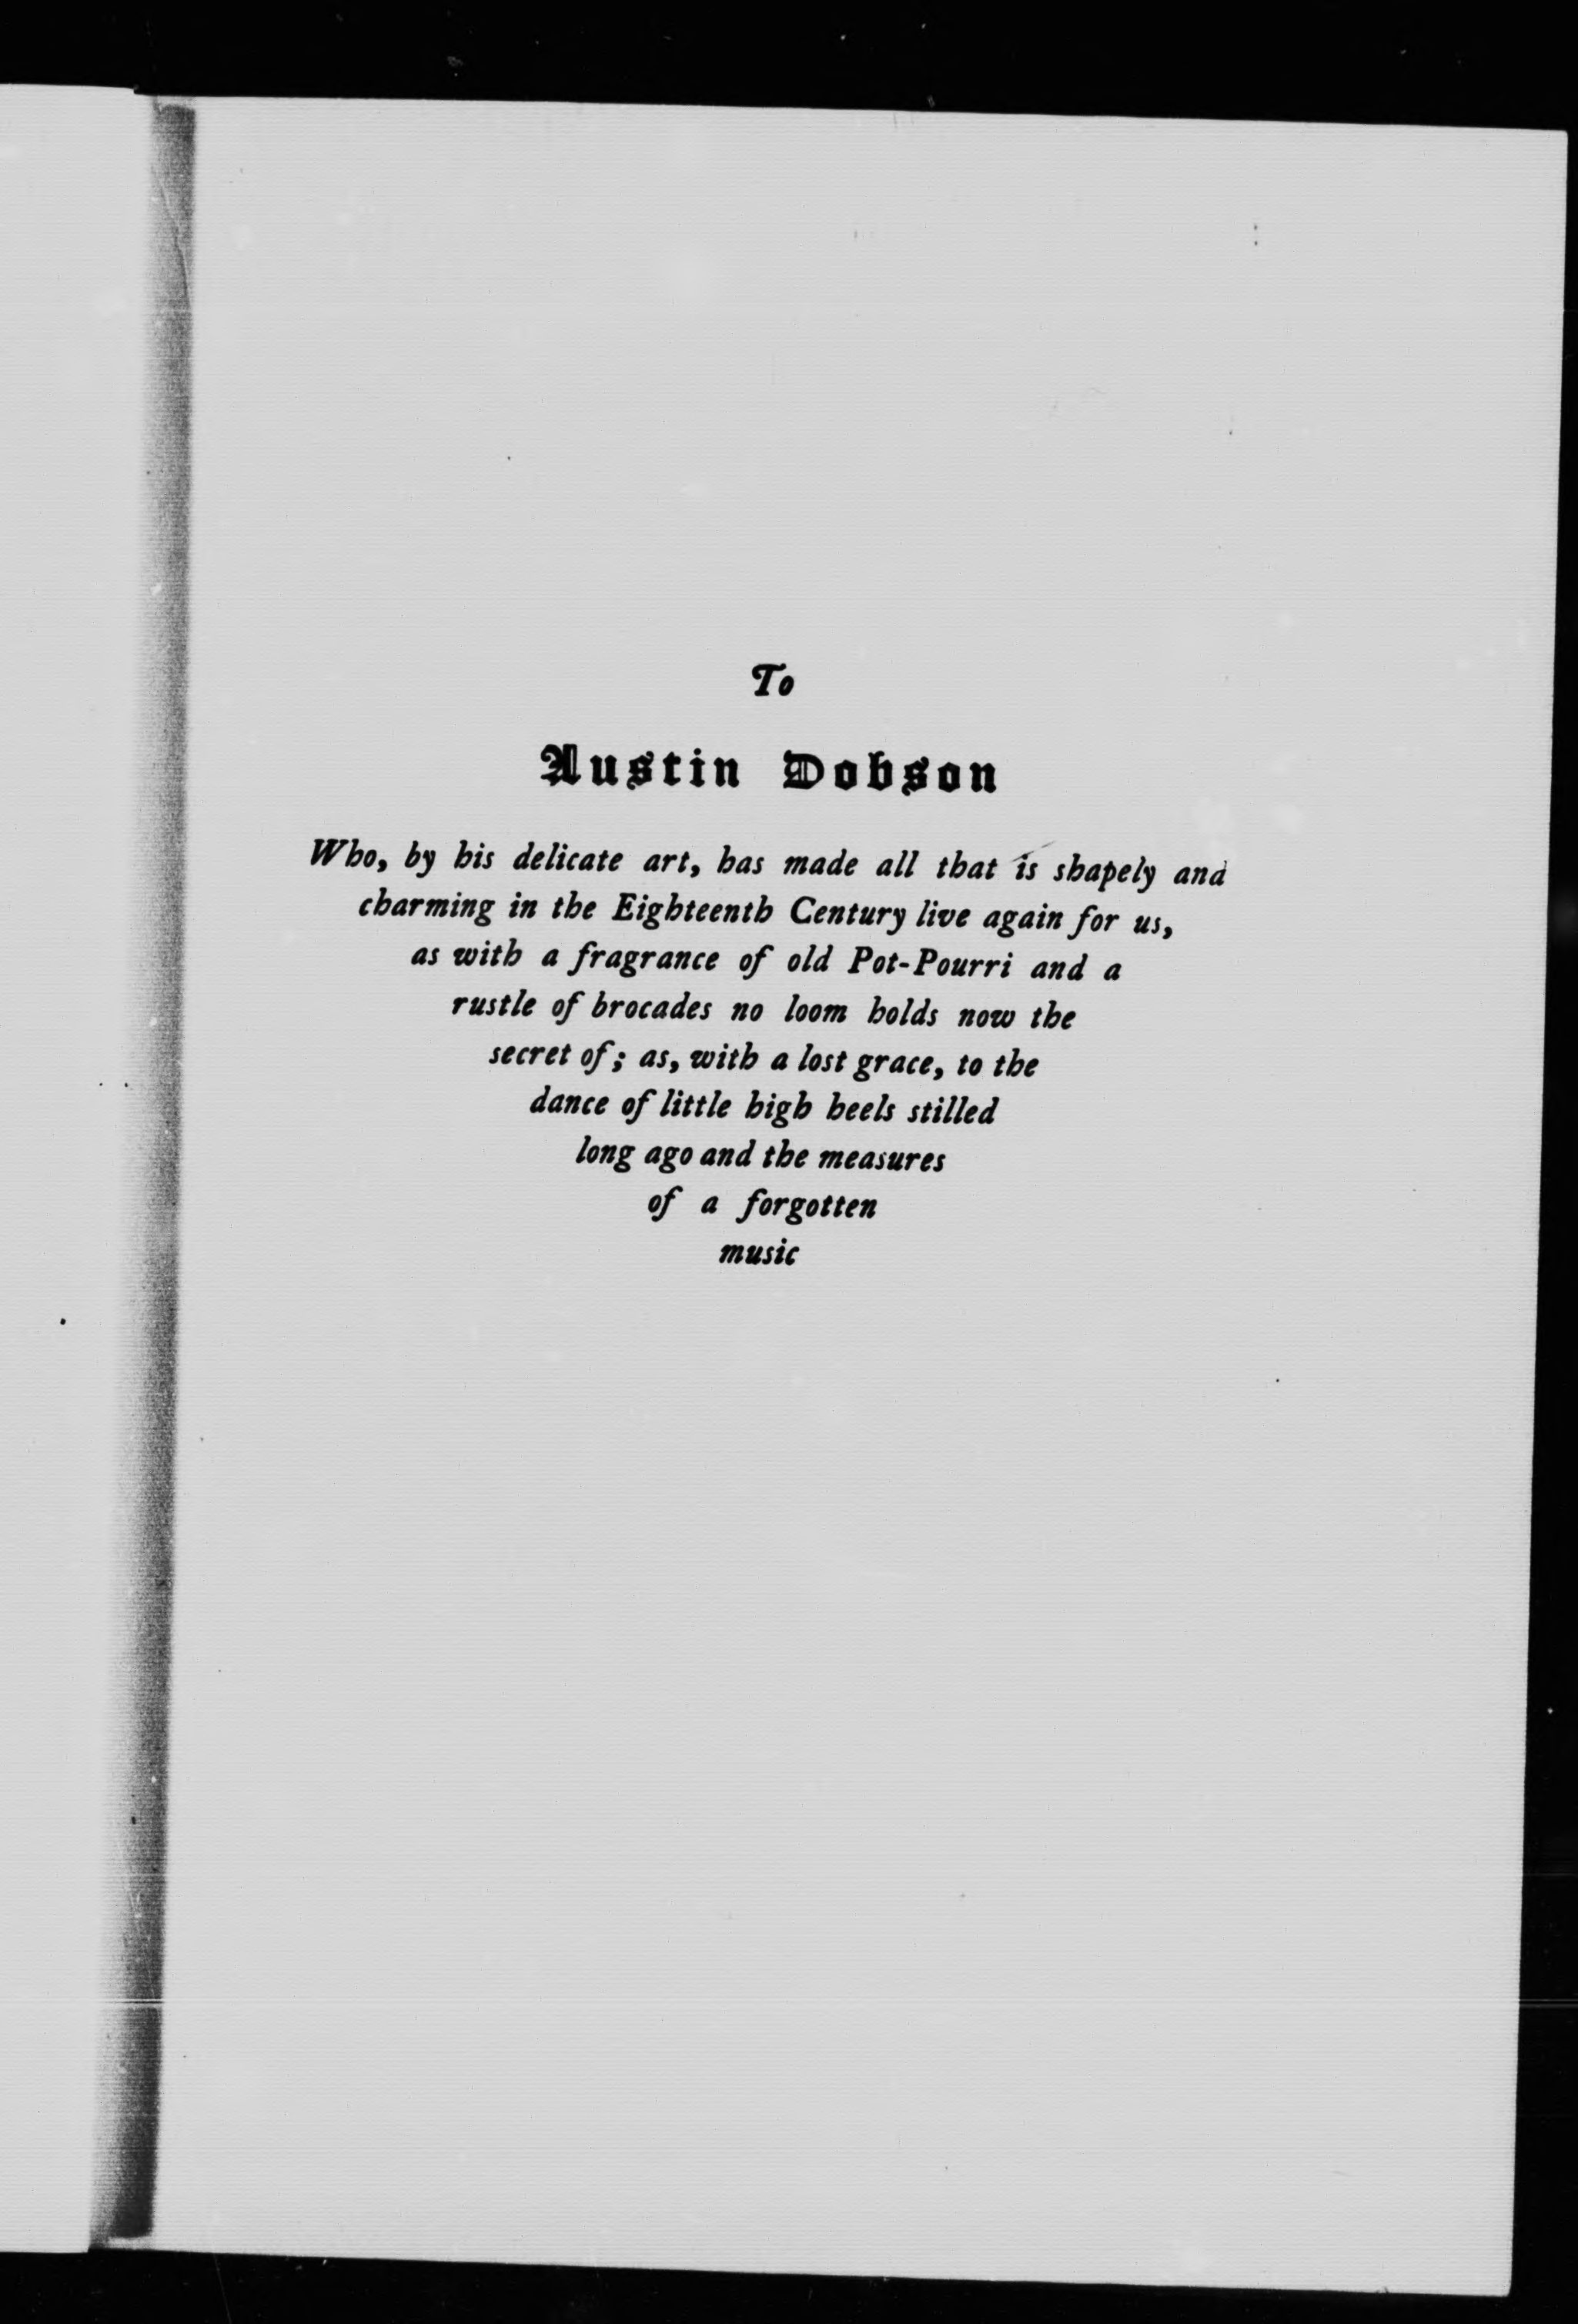 To
Austin Dobson
Who, by his delicate art, has made all that is shapely and
charming in the Eighteenth Century live again for us,
as with a fragrance of old Pot-Pourri and a
rustle of brocades no loom holds now the
secret of; as, with a lost grace, to the
dance of little high heels stilled
long ago and the measures
of a forgotten
music